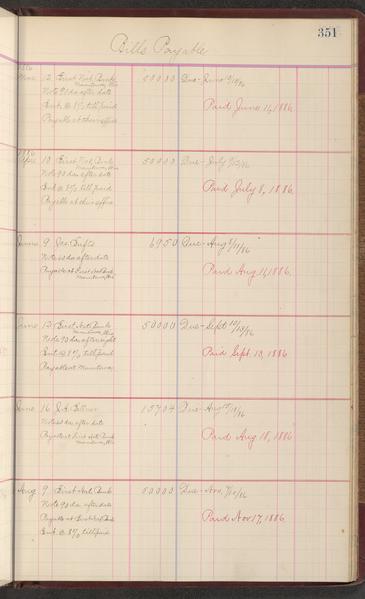 351
Bills Payable
1886
Mar. 12 First Nat. Bank 500 00 Due - June 9/12/86
Note 90 da. after date
Int. @ 8% till paid Paid June 14, 1886.
Payable at their office
1886
Apr. 10 First Nat. Bank 500 00 Due - July 9/12/86
Note 90 da. after date
Int @ 8% till paid Paid July 8, 1886
Payable at their office
June 9 Jas. 69 50 Due - Aug 8/11/86
Note 60 da after date
Payable at First Nat. Bank Paid Aug 11, 1886.
June 12 First Nat. Bank 500 00 Due - Sept 10/13/86
Note 90 da after
Int @ 8% till paid Paid Sept. 13, 1886
Payable at
June 16 157 04 Due - Aug 15/18/86
Note 60 da. after date
Payable at First Nat. Bank Paid Aug 18, 1886
Aug 9 First Nat. Bank 500 00 Due - Nov. 7/10/86
Note 90 da. after date
Payable at First Nat. Bank Paid Nov 17, 1886
Int @ 8% till paid